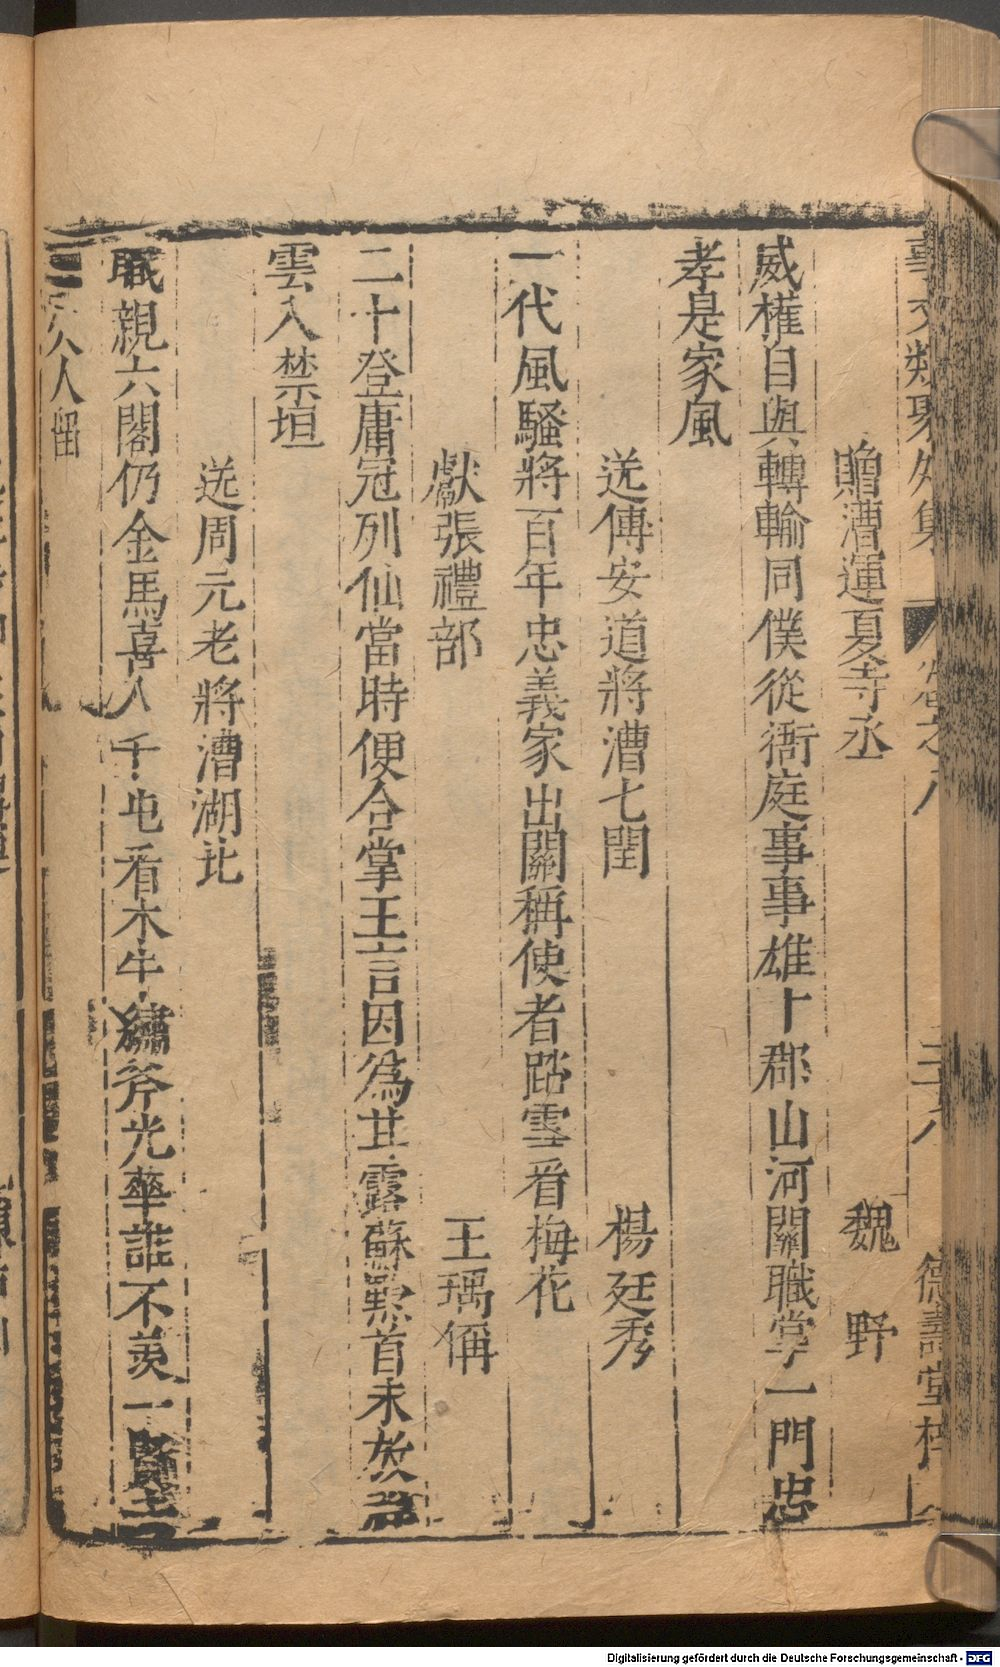 事文類聚外集 卷之八 三十八 德壽堂梓
贈漕運夏寺丞 魏野
威權自與轉輸同僕從衙庭事事雄十郡山河關職掌一門忠
孝是家風
送傅安道將漕七閩 楊廷秀
一代風騷將百年忠義家出關稱使者踏雪看梅花
獻張禮部 王瑀偁
二十登庸冠列仙當時便合掌王言因為甘露蘇黔首未放
雲入禁垣
送周元老將漕湖北
職親六閣仍金馬喜入千屯看木牛繡斧光華誰不羨一賢
人留
Digitalisierung gefördert durch die Deutsche Forschungsgemeinschaft - DFG